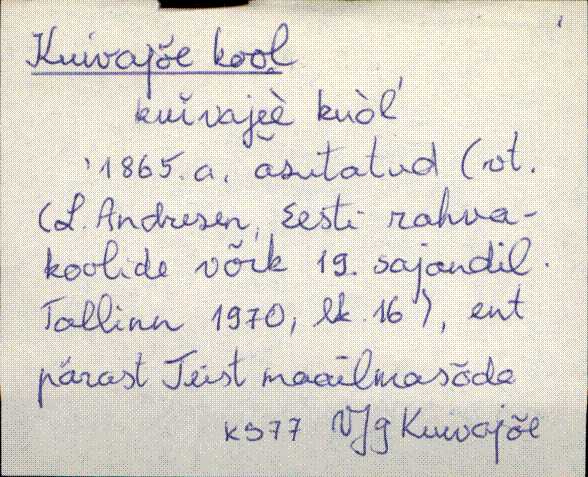 Kuivajõe kool
kuivajèè kuòl'
1865. a. asutatud (vt.
(L. Andresen, Eesti rahva-
koolide võrk 19. sajandil.
Tallinn 1970, lk. 16), ent
pärast Teist maailmasõda
KS77 VJg Kuivajõe